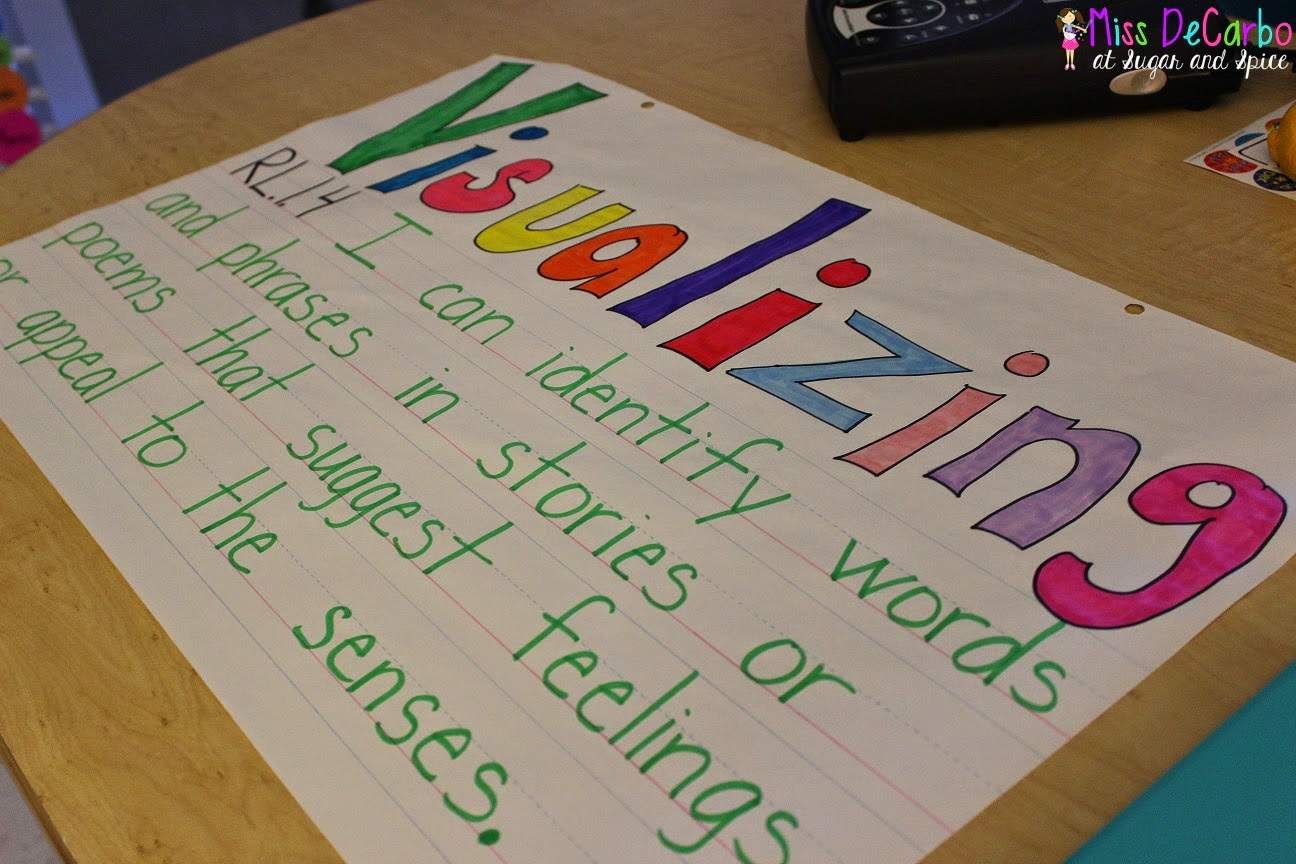 Visualizing
RL.1.4 I can identify words
and phrases in stories or
poems that suggest feelings
or appeal to the senses.
Miss DeCarbo
at Sugar and Spice